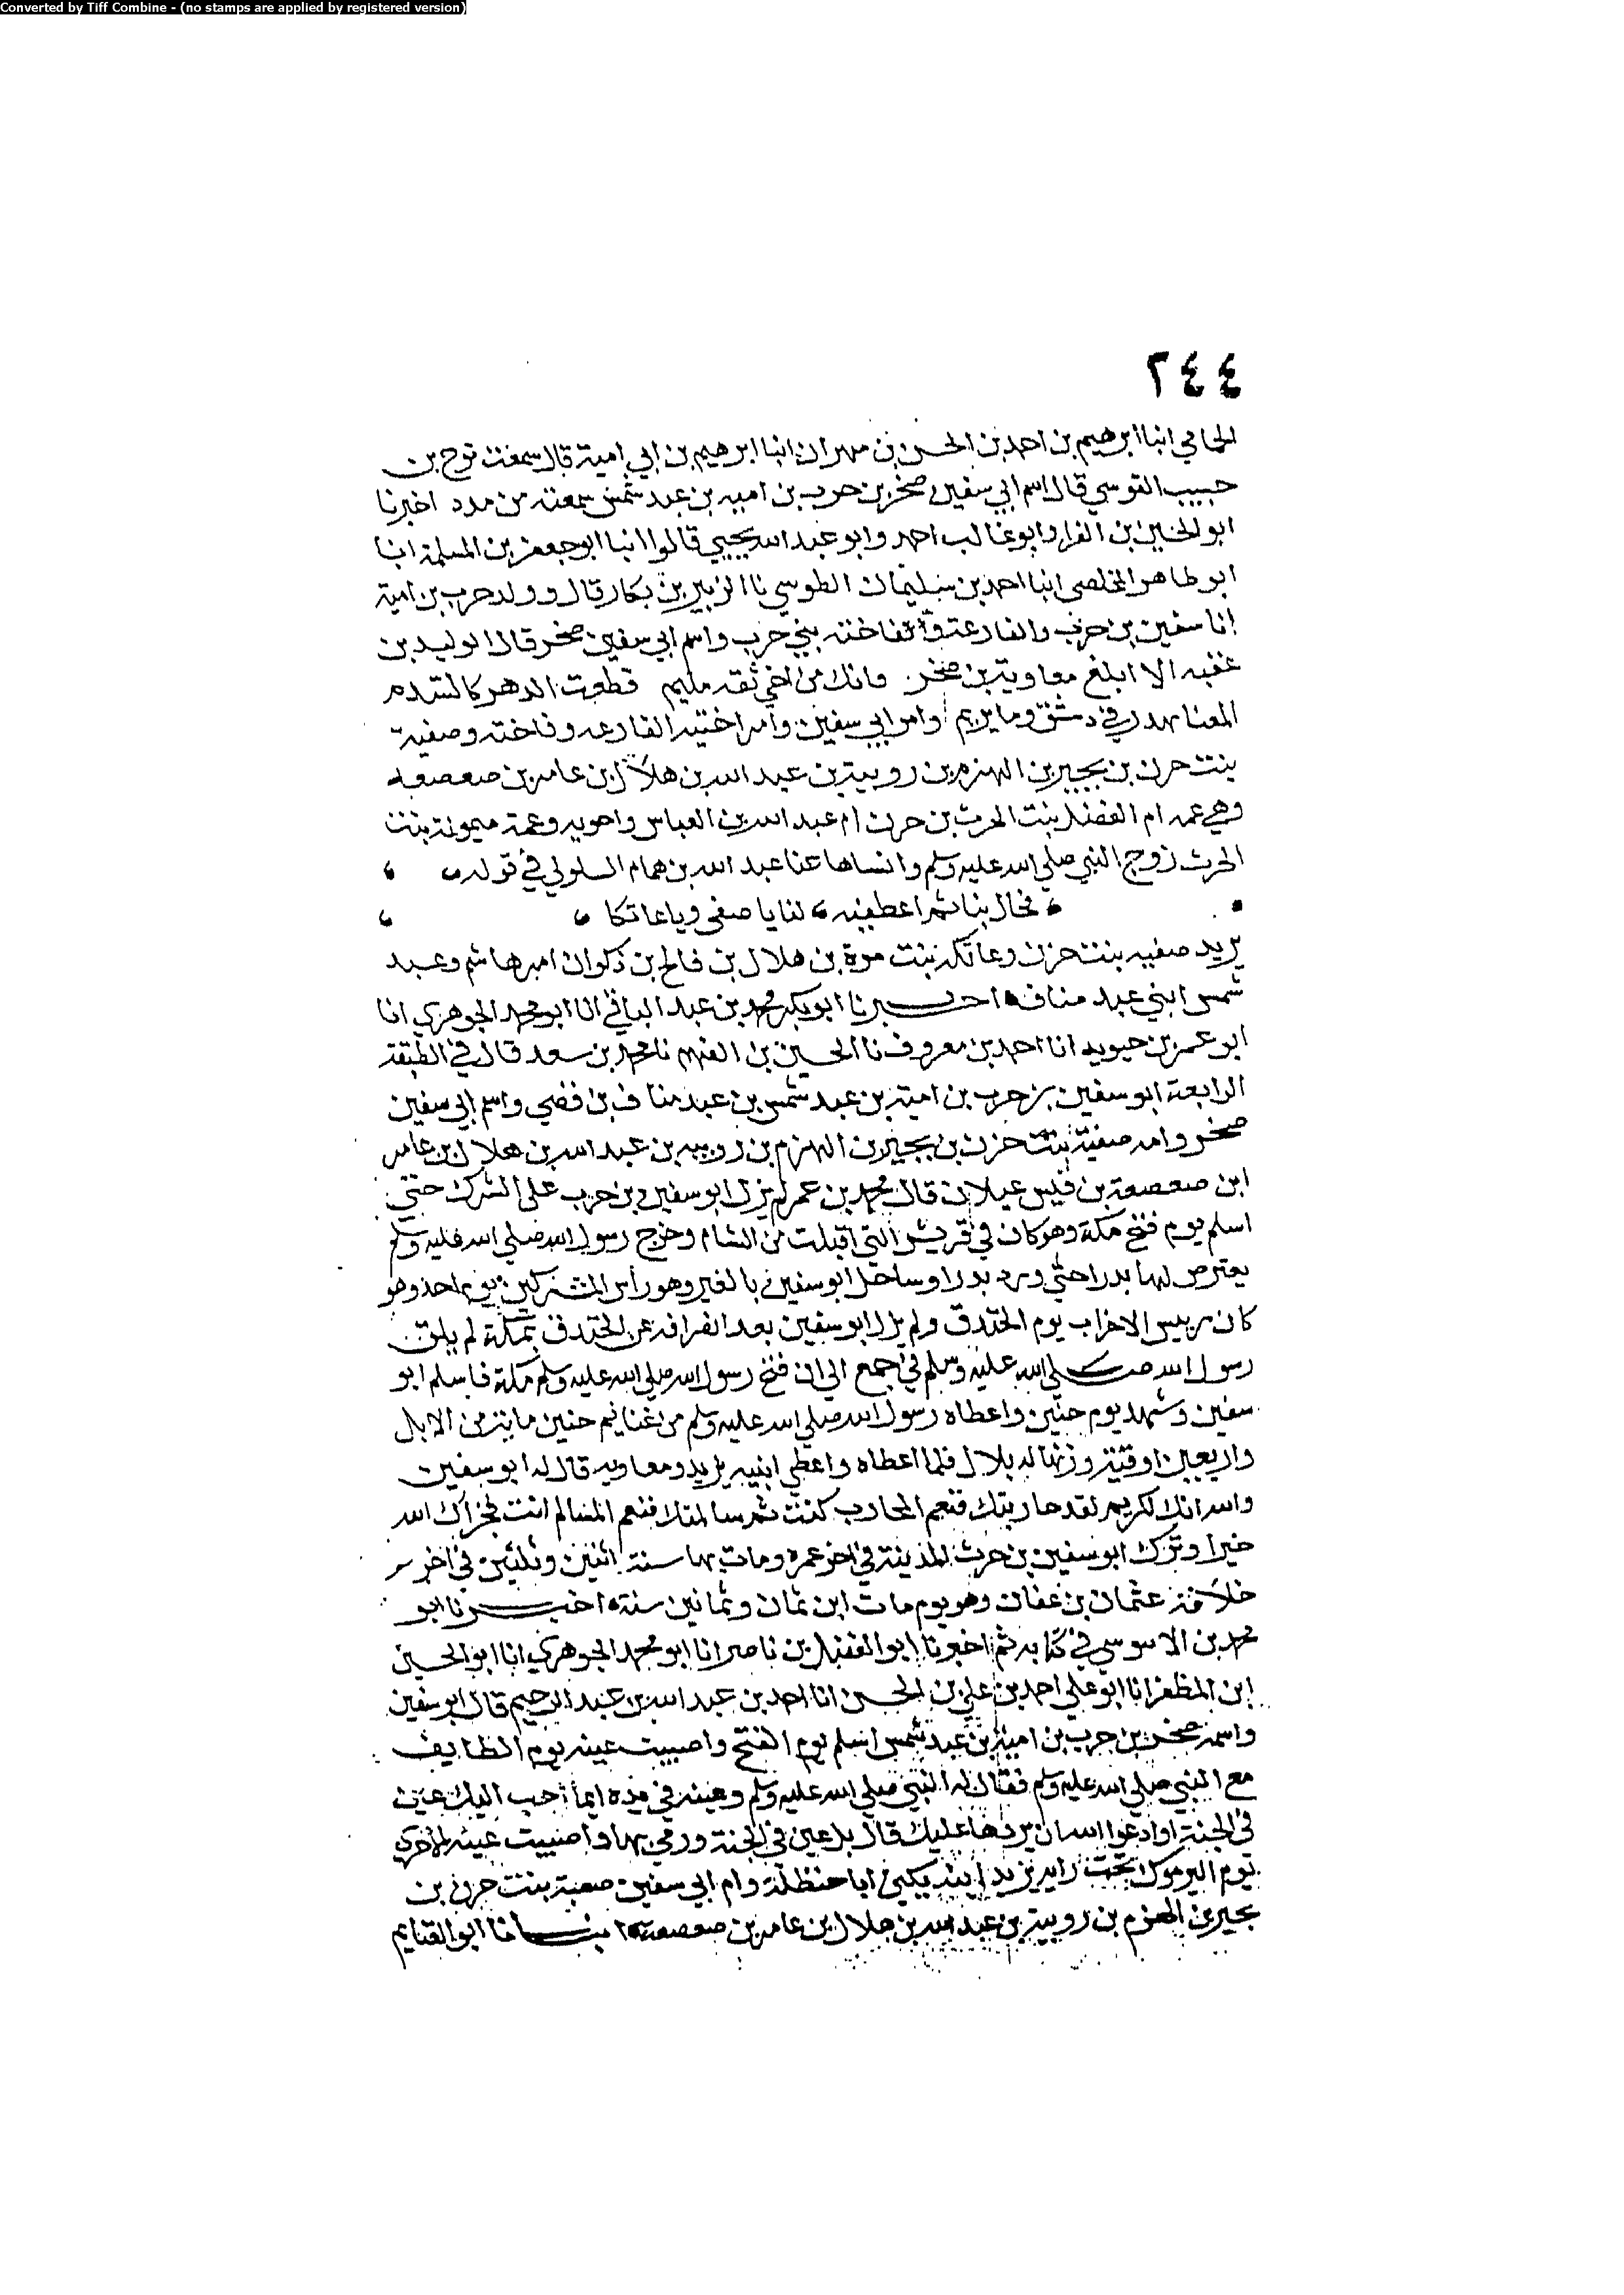 Converted by Tiff Combine - (no stamps are applied by registered version)
٢٤٤
الحمامي انبا ابرهيم بن احمد بن الحسن بن مهران انبا ابرهيم بن ابي امية قال سمعت نوح بن
حبيب القوسي قال اسم ابي سفين صخر بن حرب بن اميه بن عبد شمس سمعته من مدد اخبرنا
ابو الحسين بن الفرا وابو غالب احمد وابو عبد الله يحيي قالوا انبا ابو جعفر بن المسلمة انبا
ابو طاهر المخلصى انبا احمد بن سليمان الطوسي نا الزبير بن بكار قال وولد حرب بن امية
ابا سفين بن حرب والفارعة وفاخته بني حرب واسم ابي سفين صخر قال الوليد بن
عقبه الا ابلغ معاوية بن صخر فانك من اخي ثقه مليم قطعت الدهر كالسدم
المعنا تهدر في دمشق وما يريم وام ابي سفين وام اختيه الفارعه وفاخته وصفية
بنت حزن بن بجير بن الهزم بن رويبة بن عبد الله بن هلال بن عامر بن صعصعه
وهي عمه ام الفضل بنت الحرث بن حزن ام عبد الله بن العباس واخويه وعمة ميمونة بنت
الحرث زوج النبي صلي الله عليه وسلم وانساها عنا عبد الله بن همام السلولي في قوله
فخال بنا ثم اعطفنه لنا يا صفى ويا عاتكا
يريد صفيه بنت حزن وعاتكة بنت مرة بن هلال بن فالج بن ذكوان ام هاشم وعبد
شمس ابني عبد مناف اخبرنا ابو بكر محمد بن عبد الباقي انا ابو محمد الجوهري انا
ابو عمر بن حيويه انا احمد بن معروف نا الحسين بن الفهم نا محمد بن سعد قال في الطبقة
الرابعة ابو سفين بن حرب بن امية بن عبد شمس بن عبد مناف بن قصي واسم ابي سفين
صخر وامه صفية بنت حزن بن بجير بن الهزم بن رويبه بن عبد الله بن هلال بن عامر
ابن صعصعة بن قيس عيلان قال محمد بن عمر لم يزل ابو سفين بن حرب على الشرك حتي
اسلم يوم فتح مكة وهو كان في قريش التي اقبلت من الشام وخرج رسول الله صلي الله عليه وسلم
يعترض لها بدرا حتى ورد بدرا وساحل ابو سفين بالعير وهو راس المشركين يوم احد وهو
كان رييس الاحزاب يوم الخندق ولم يزل ابو سفين بعد انصرافه عن الخندق بمكة لم يلق
رسول الله صلي الله عليه وسلم في جمع الي ان فتح رسول الله صلي الله عليه وسلم مكة فاسلم ابو
سفين وشهد يوم حنين واعطاه رسول الله صلي الله عليه وسلم من غنايم حنين ماية من الابل
واربعين اوقية وزنها له بلال فلما اعطاه واعطي ابنيه يزيد ومعاويه قال له ابو سفين
والله انك لكريم لقد حاربتك فنعم المحارب كنت ثم سالمتك فنعم المسالم انت فجزاك الله
خيرا وترك ابو سفين بن حرب المدينة في اخر عمره ومات بها سنة اثنين وثلثين في اخر
خلافة عثمان بن عفان وهو يوم مات ابن ثمان وثمانين سنة اخبرنا ابو
محمد بن الابنوسي في كتابه ثم اخبرنا ابو الفضل بن ناصر انا ابو محمد الجوهري انا ابو الحسين
ابن المظفر انا ابو علي احمد بن علي بن الحسن انا احمد بن عبد الله بن عبد الرحيم قال ابو سفين
واسمه صخر بن حرب بن امية بن عبد شمس اسلم يوم الفتح واصيبت عينه يوم الطايف
مع النبي صلي الله عليه وسلم فقال له النبي صلي الله عليه وسلم وعينه في يده ايما احب اليك عين
في الجنة او ادعوا الله ان يردها عليك قال بل عين في الجنة ورمي بها واصيبت عينه الاخرى
يوم اليرموك تحت راية يزيد ابنه يكني ابا حنظلة وام ابي سفين صفية بنت حزن بن
بجير بن الهزم بن رويبة بن عبد الله بن هلال بن عامر بن صعصعة انبانا ابو الغنايم